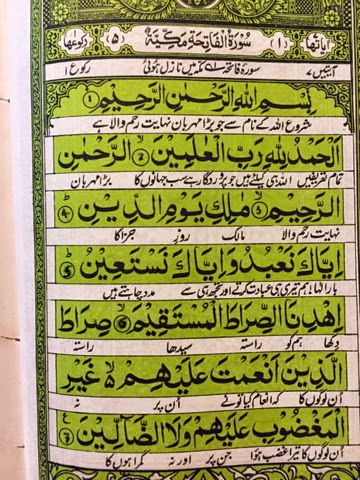 اٰیاتها (۱) سُوْرَةُ الْفَاتِحَةِ مَكِّيَّةٌ (۵) رکوعها ۱
آیتیں ۷ سورۂ فاتحہ مکہ میں نازل ہوئی رکوع ۱
بِسْمِ اللهِ الرَّحْمٰنِ الرَّحِيْمِ ۝۱
شروع اللہ کے نام سے جو بڑا مہربان نہایت رحم والا ہے
اَلْحَمْدُ لِلّٰهِ رَبِّ الْعٰلَمِيْنَ ۝۲ الرَّحْمٰنِ
تمام تعریفیں اللہ ہی کیلئے ہیں جو پروردگار ہے سب جہانوں کا بڑا مہربان
الرَّحِيْمِ ۝۳ مٰلِكِ يَوْمِ الدِّيْنِ ۝۴
نہایت رحم والا مالک روزِ جزا کا
اِيَّاكَ نَعْبُدُ وَاِيَّاكَ نَسْتَعِيْنُ ۝۵
بارالٰہا! ہم تیری ہی عبادت کرتے اور تجھ ہی سے مدد چاہتے ہیں
اِهْدِنَا الصِّرَاطَ الْمُسْتَقِيْمَ ۝۶ صِرَاطَ
دکھا ہم کو راستہ سیدھا راستہ
الَّذِيْنَ اَنْعَمْتَ عَلَيْهِمْ ۙ غَيْرِ
اُن لوگوں کا کہ انعام کیا تو نے اُن پر نہ
الْمَغْضُوْبِ عَلَيْهِمْ وَلَا الضَّآلِّيْنَ ۝۷
اُن لوگوں کا تیرا غضب ہوا جن پر اور نہ گمراہوں کا